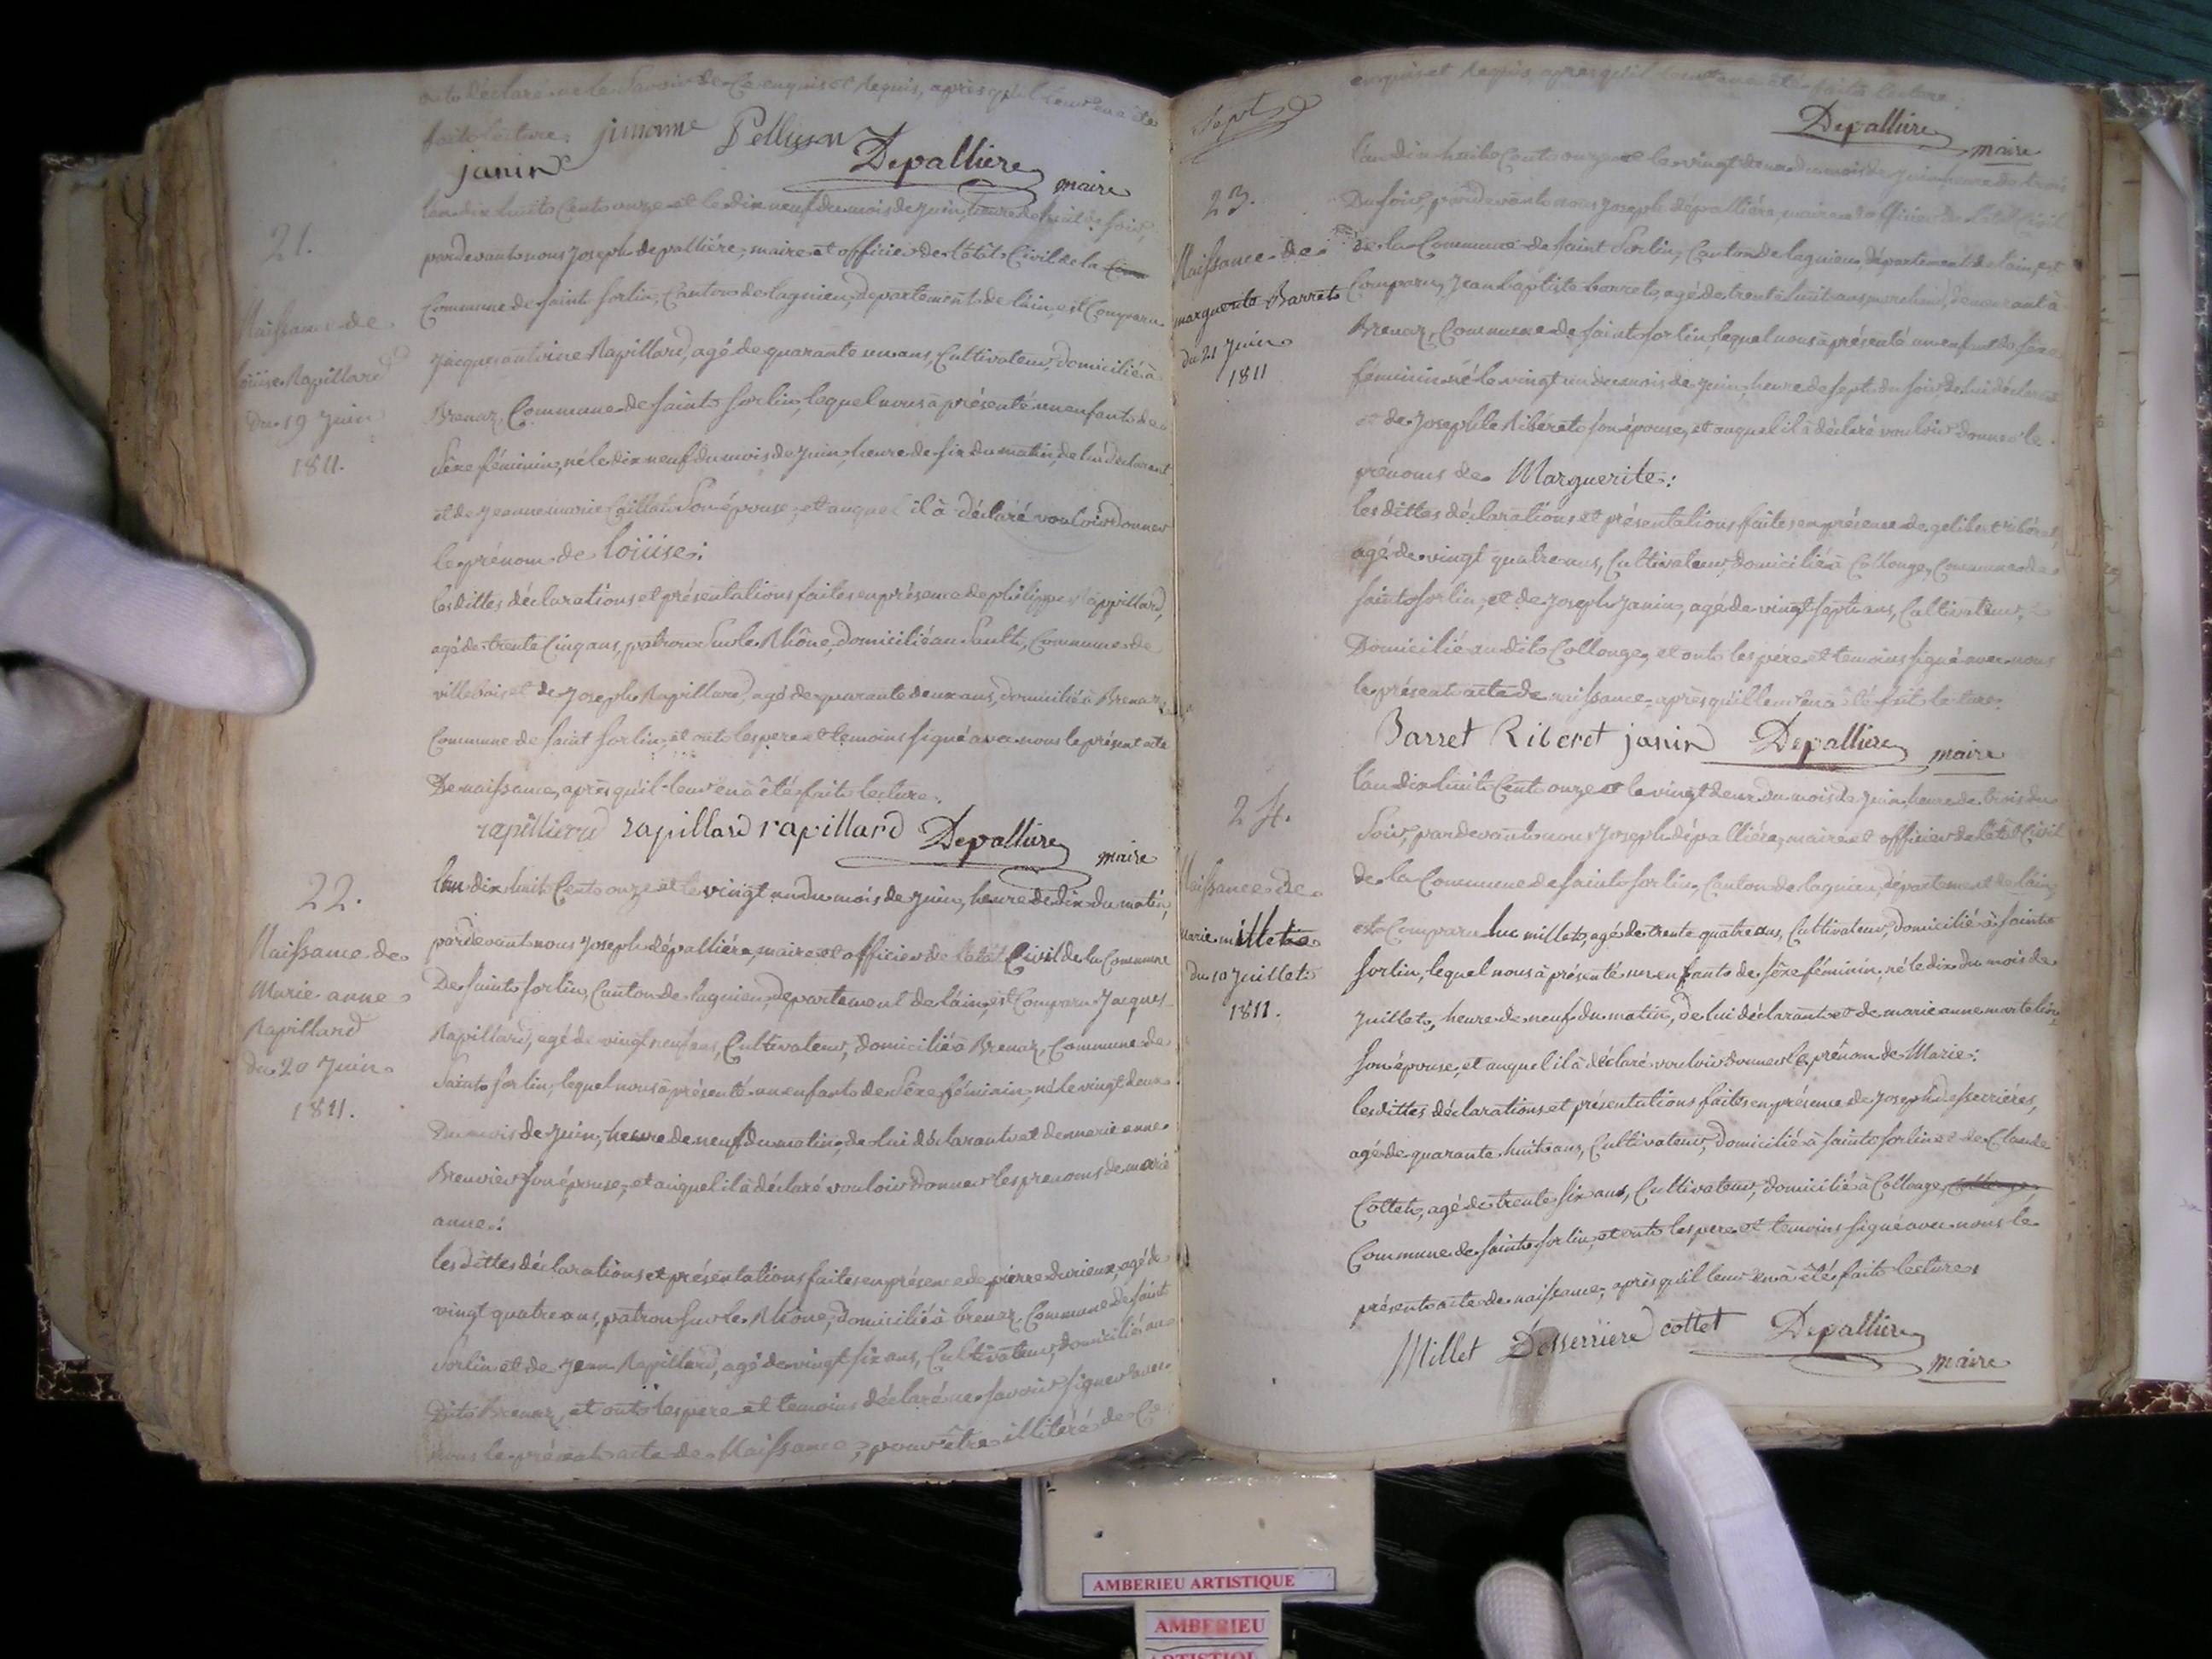 onts déclaré ne le Savoir de Ce enquis et Requis, après qu'il leur en a été
faite lecture.
jinome Pellison
janin Depalliere maire
21.
Naissance de
loüise Rapillard
Du 19 Juin
1811.
l'an dix huits Cents onze et le dix neuf du mois de Juin, heure de huit du soir,
pardevants nous Joseph depalliére, maire et officier de l'état Civil de la
Commune de saint sorlin, Canton de lagnieu, département de l'ain, est Comparu
Jacque antoine Rapillard, agé de quarante un ans, Cultivateur, domicilié à
Brenaz, Commune de saint sorlin, lequel nous à présenté un enfant de
Séxe féminin, né le dix neuf du mois de Juin, heure de six du matin, de lui déclarant
et de Jeanne marie Caillat Son épouse, et auquel il à déclaré vouloir donner
le prénom de loüise:
les dittes déclarations et présentations faites en présence de philippe rappillard,
agé de trente Cinq ans, patron Sur le Rhône, domicilié au Sault, Commune de
villebois et de Joseph Rapillard, agé de quarante deux ans, domicilié à Brenaz,
Commune de saint sorlin, et onts les pere et temoins signé avec nous le présent acte
De naissance, après qu'il leur en à été faite lecture.
rapilliard rapillard rapillard Depalliere maire
22.
Naissance de
Marie anne
Rapillard
du 20 Juin
1811.
l'an dix huits Cents onze et le vingt un du mois de Juin, heure de dix du matin,
pardevant nous Joseph dépalliére, maire et officier de l'état Civil de la Commune
De saint sorlin, Canton de lagnieu, département de l'ain, est Comparu Jacques
Rapillard, agé de vingt neuf ans, Cultivateur, domicilié à Brenaz, Commune de
Saint sorlin, lequel nous à présenté un enfant de Séxe féminin, né le vingt deux
Du mois de Juin, heure de neuf du matin, de lui déclarant et de marie anne
son épouse, et auquel il à déclaré vouloir donner les prenoms de marie
anne:
les dittes déclarations et présentations faites en présence de pierre durieux, agé de
vingt quatre ans, patron sur le Rhône, domicilié à brenaz, Commune de saint
Sorlin et de Jean Rapillard, agé de vingt six ans, Cultivateur, domicilié au
Dit Brenaz, et onts les pere et temoins déclaré ne savoir signer avec
nous le présent acte de Naissance, pour être illitéré de Ce
Sept
enquis et Requis, après qu'il leur en a été faite lecture.
Depalliere maire
23.
Naissance de
marguerite Barret
du 21 Juin
1811
l'an dix huits Cents onze et le vingt deux du mois de Juin heure de trois
Du soir, pardevants nous Joseph dépalliére, maire et officier de l'état Civil
de la Commune de saint sorlin, Canton de lagnieu, département de l'ain, est
Comparu, Jean baptiste barret, agé de trente huit ans, demeurant à
Brenaz, Commune de saint sorlin, lequel nous à présenté un enfant de séxe
féminin né le vingt un du mois de Juin, heure de sept du soir, de lui déclarant
et de Josephte Riberet son épouse, et auquel il à déclaré vouloir donner le
prénoms de Marguerite:
les dittes déclarations et présentations faites en présence de gelibert ribéret,
agé de vingt quatre ans, Cultivateur, domicilié à Collonge, Commune de
saint sorlin, et de Joseph Janin, agé de vingt sept ans, Cultivateur,
Domicilié au dit Collonge, et onts les pére et temoins signé avec nous
le présent acte de naissance, après qu'il leur en à été fait lecture.
Barret Riberet janin Depalliere maire
24.
Naissance de
Marie millet
du 10 Juillet
1811.
l'an dix huits Cents onze et le vingt deux du mois de Juin, heure de trois du
Soir, pardevant nous Joseph dépalliére, maire et officier de l'état Civil
de la Commune de saint sorlin, Canton de lagnieu, département de l'ain,
est Comparu luc millet, agé de trente quatre ans, Cultivateur, domicilié à saint
sorlin, lequel nous à présenté un enfant de séxe féminin, né le dix du mois de
Juillet, heure de neuf du matin, de lui déclarant et de marie anne martelin,
son épouse, et auquel il à déclaré vouloir donner le prénom de Marie:
les dittes déclarations et présentations faites en présence de Joseph desserriéres,
agé de quarante huit ans, Cultivateur, domicilié à saint sorlin et de Claude
Cottet, agé de trente six ans, Cultivateur, domicilié à Collonge,
Commune de saint sorlin, et onts les pere et temoins signé avec nous le
présent acte de naissance, après qu'il leur en à été faite lecture.
Millet Desserriere cottet Depalliere maire
AMBERIEU ARTISTIQUE
AMBERIEU
ARTISTIQUE